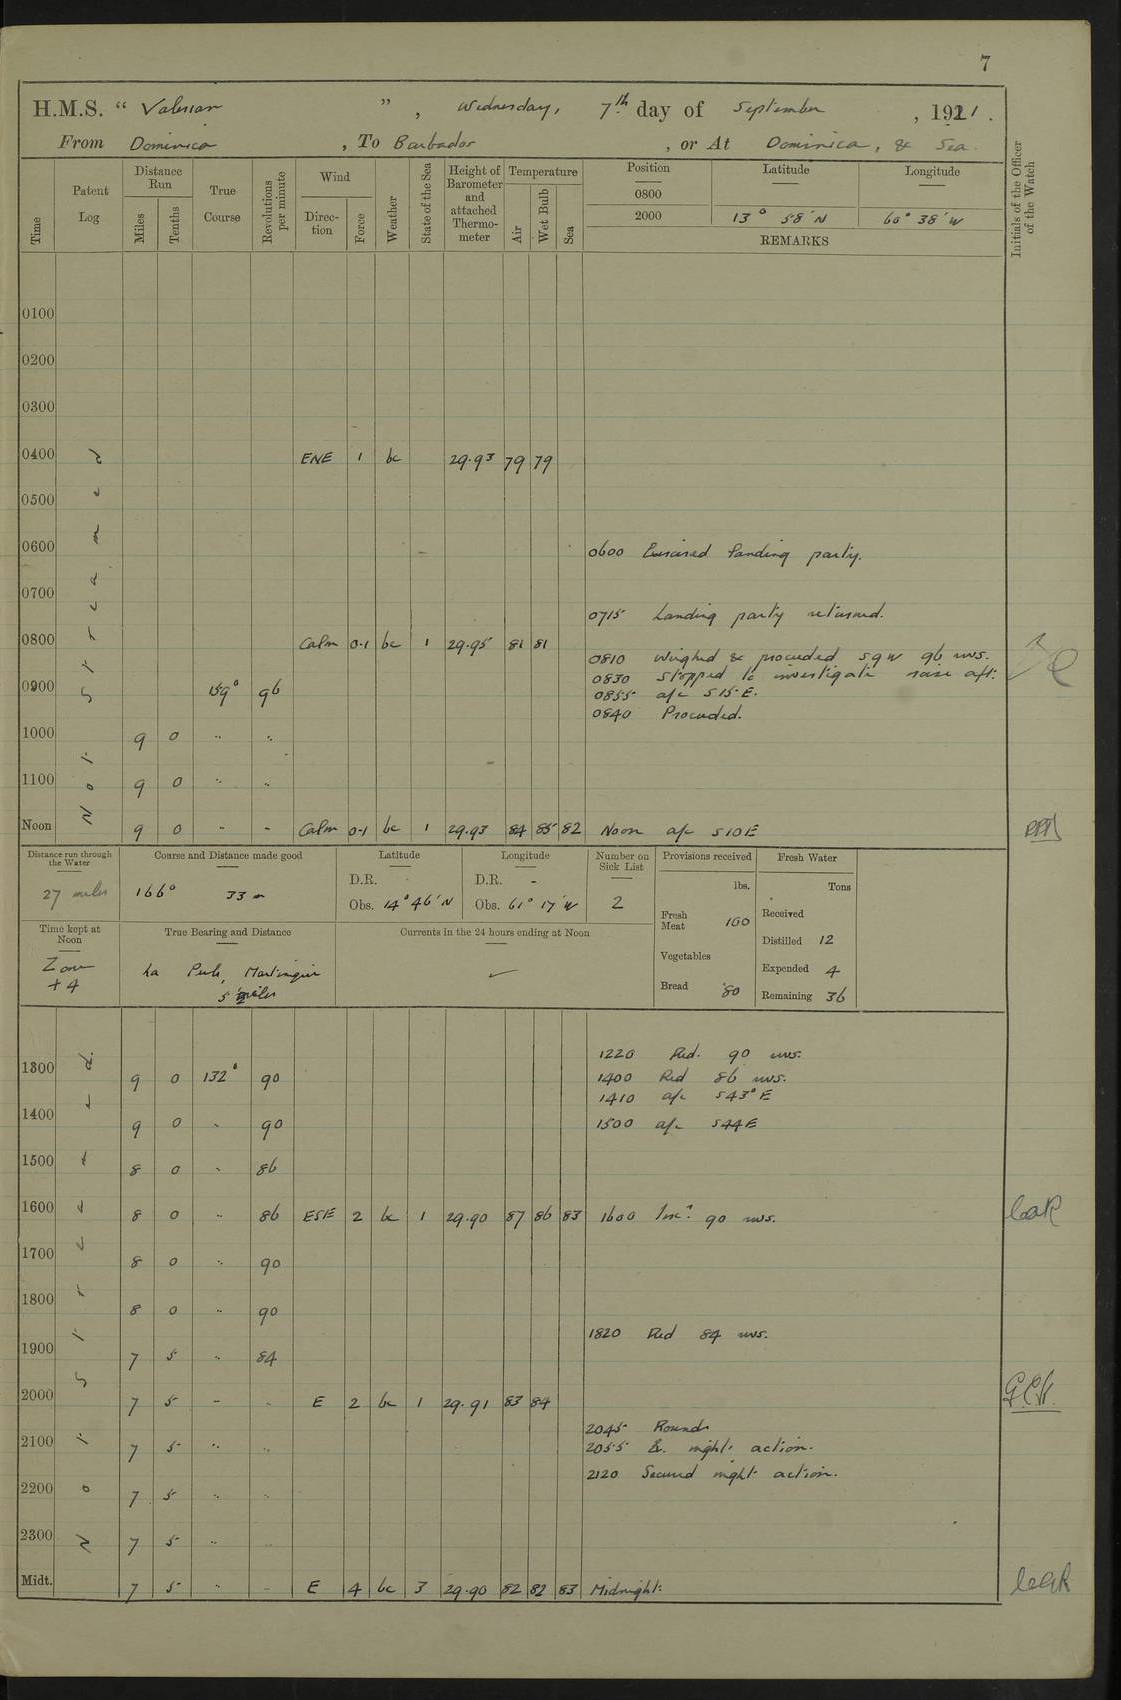 7
H.M.S. " Valerian " , Wednesday, 7th day of September , 1921 .
From Dominica , To Barbados , or At Dominica, & Sea
Time Patent Log Distance Run Miles Tenths True Course Revolutions per minute Wind Direction Force Weather State of the Sea Height of Barometer and attached Thermometer Temperature Air Wet Bulb Sea Position Latitude Longitude Initials of the Officer of the Watch
0800
2000 13° 58' N 60° 38' W
REMARKS
Not Streamed
0100
0200
0300
0400 ENE 1 bc 29.93 79 79
0500
0600 0600 Exercised landing party.
0700
0715 Landing party returned.
0800 Calm 0-1 bc 1 29.95 81 81
0810 Weighed & proceeded S9W 96 revs.
0830 Stopped to investigate noise aft.
0900 159° 96 0855 a/c S15E.
0840 Proceeded.
1000 9 0 " "
1100 9 0 " "
Noon 9 0 " " Calm 0-1 bc 1 29.93 84 85 82 Noon a/c S10E
Distance run through the Water Course and Distance made good Latitude Longitude Number on Sick List Provisions received Fresh Water
27 miles 166° 33 m D.R. - D.R. - 2 lbs. Tons
Obs. 14° 46' N Obs. 61° 17' W
Fresh Meat 160 Received
Time kept at Noon True Bearing and Distance Currents in the 24 hours ending at Noon Vegetables Distilled 12
Zone +4 La Perle, Martinique 5 miles ✓ Expended 4
Bread 80 Remaining 36
Not Streamed.
1220 Red. 90 revs.
1300 9 0 132° 90 1400 Red 86 revs.
1410 a/c S43°E
1400 9 0 " 90 1500 a/c S44E
1500 8 0 " 86
1600 8 0 " 86 ESE 2 bc 1 29.90 87 86 83 1600 Incd. 90 revs.
1700 8 0 " 90
1800 8 0 " 90
1820 Red 84 revs.
1900 7 5 " 84
2000 7 5 " " E 2 bc 1 29.91 83 84
2045 Rounds
2100 7 5 " " 2055 Ex. night action.
2120 Secured night action.
2200 7 5 " "
2300 7 5 " "
Midt. 7 5 " " E 4 bc 3 29.90 82 82 83 Midnight: